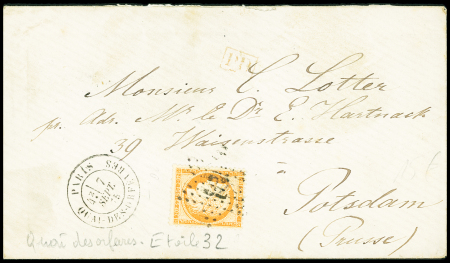 PD
Monsieur C. Lotter
pr. Adr. Mr. le Dr. E. Hartnack
39 Waisenstrasse
à
Potsdam
(Prusse)
PARIS
7
SEPT.
QUAI-DES-ORFÈVRES
Quai des orfèvres. Etoile 32